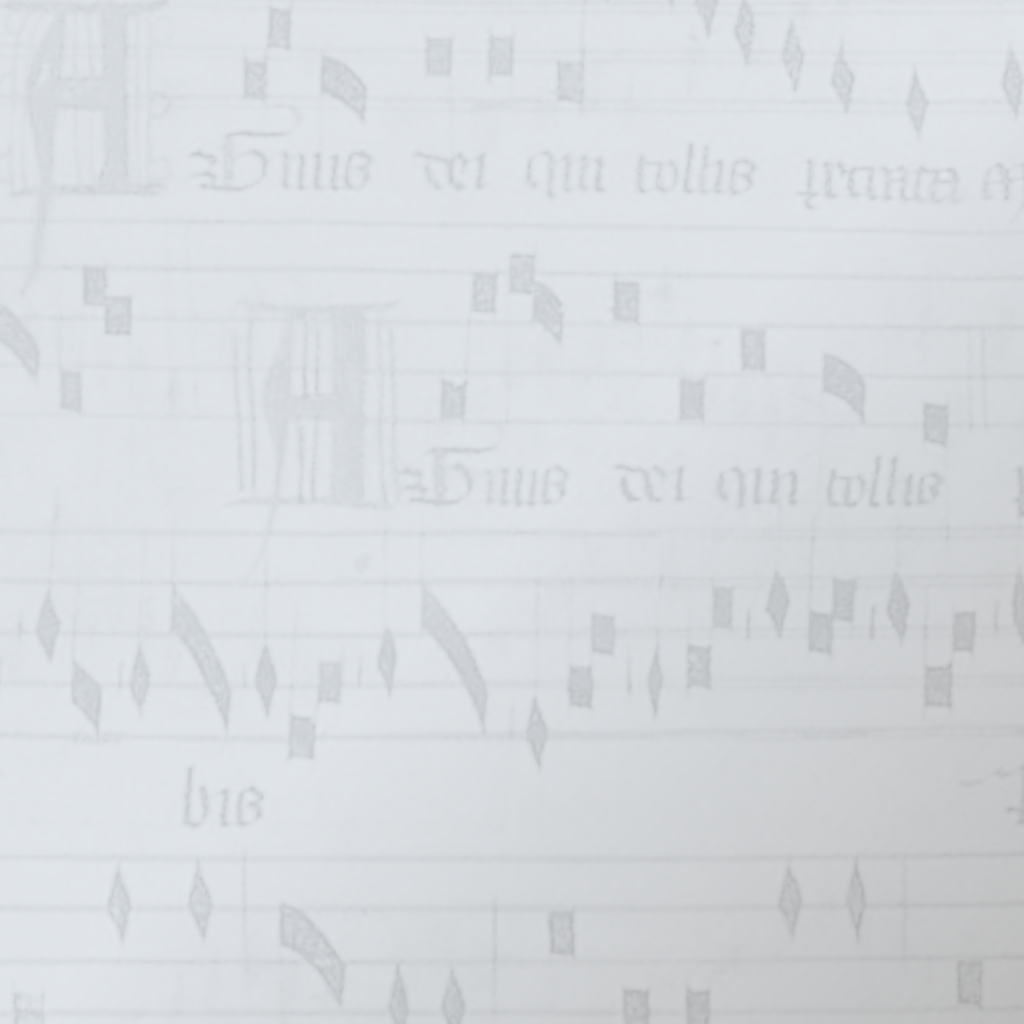 Agnus dei qui tollis peccata
Agnus dei qui tollis
bis